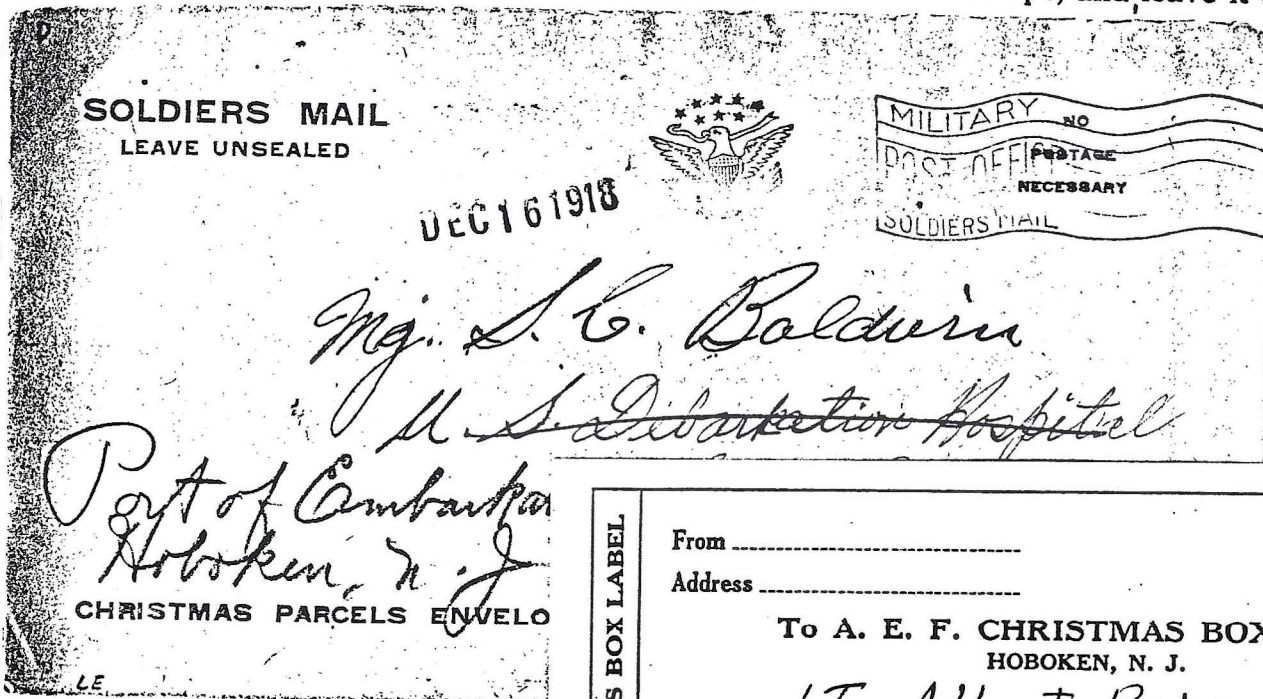 and leave it
SOLDIERS MAIL
LEAVE UNSEALED
DEC 16 1918
MILITARY
POST OFFICE
SOLDIERS MAIL
NO
POSTAGE
NECESSARY
Mg. S. C. Baldwin
U. S. Debarkation Hospital
Port of Embarka
Hoboken, N. J
CHRISTMAS PARCELS ENVELO
LE
S BOX LABEL
From
Address
To A. E. F. CHRISTMAS BOX
HOBOKEN, N. J.